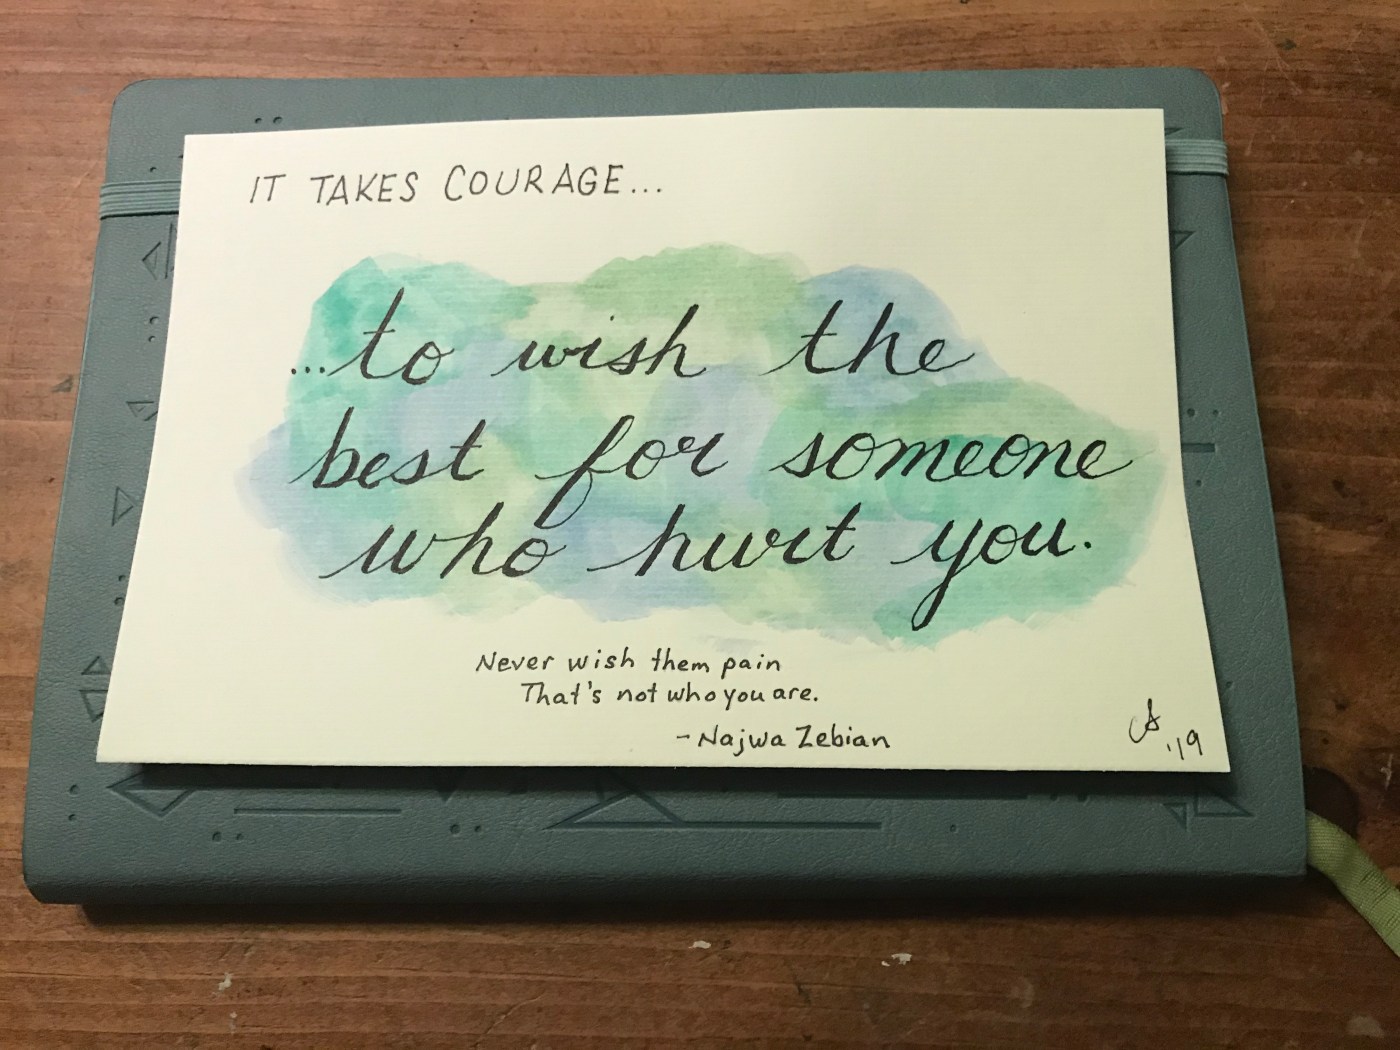 IT TAKES COURAGE...
...to wish the
best for someone
who hurt you.
Never wish them pain
That's not who you are.
- Najwa Zebian
'19